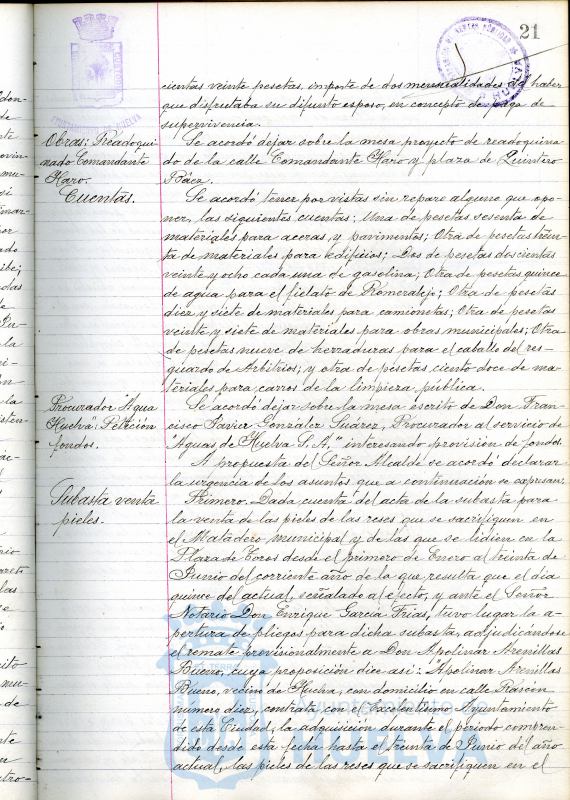 21
cientas veinte pesetas, importe de dos mensualidades de haber
que disfrutaba su difunto esposo, en concepto de paga de
supervivencia.
Obras: Readoqui-
nado Comandante
Haro.
Se acordó dejar sobre la mesa proyecto de readoquina-
do de la calle Comandante Haro y plaza de Quintero
Báez.
Cuentas.
Se acordó tener por vistas sin reparo alguno que opo-
ner, las siguientes cuentas: Una de pesetas sesenta de
materiales para aceras y pavimentos; Otra de pesetas trein-
ta de materiales para edificios; Dos de pesetas doscientas
veinte y ocho cada una de gasolina; Otra de pesetas quince
de agua para el fielato de Romeralejo; Otra de pesetas
diez y siete de materiales para camionetas; Otra de pesetas
veinte y siete de materiales para obras municipales; Otra
de pesetas nueve de herraduras para el caballo del res-
guardo de Arbitrios; y otra de pesetas ciento doce de ma-
teriales para carros de la limpieza pública.
Procurador "Agua
Huelva": Petición
fondos.
Se acordó dejar sobre la mesa escrito de Don Fran-
cisco Javier Gonzalez Suárez, Procurador al servicio de
"Aguas de Huelva S.A." interesando provisión de fondos.
A propuesta del Señor Alcalde se acordó declarar
la urgencia de los asuntos que a continuación se expresan:
Subasta venta
pieles.
Primero. Dada cuenta del acta de la subasta para
la venta de las pieles de las reses que se sacrifiquen en
el Matadero municipal y de las que se lidien en la
Plaza de Toros desde el primero de Enero al treinta de
Junio del corriente año de la que resulta que el día
quince del actual, señalado al efecto, y ante el Señor
Notario Don Enrique García Frias, tuvo lugar la a-
pertura de pliegos para dicha subasta, adjudicándose
el remate provisionalmente a Don Apolinar Arenillas
Bueno, cuya proposición dice así: "Apolinar Arenillas
Bueno, vecino de Huelva, con domicilio en calle Rascon
numero diez, contrata con el Excelentísimo Ayuntamiento
de esta Ciudad, la adquisición durante el periodo compren-
dido desde esta fecha hasta el treinta de Junio del año
actual, las pieles de las reses que se sacrifiquen en el